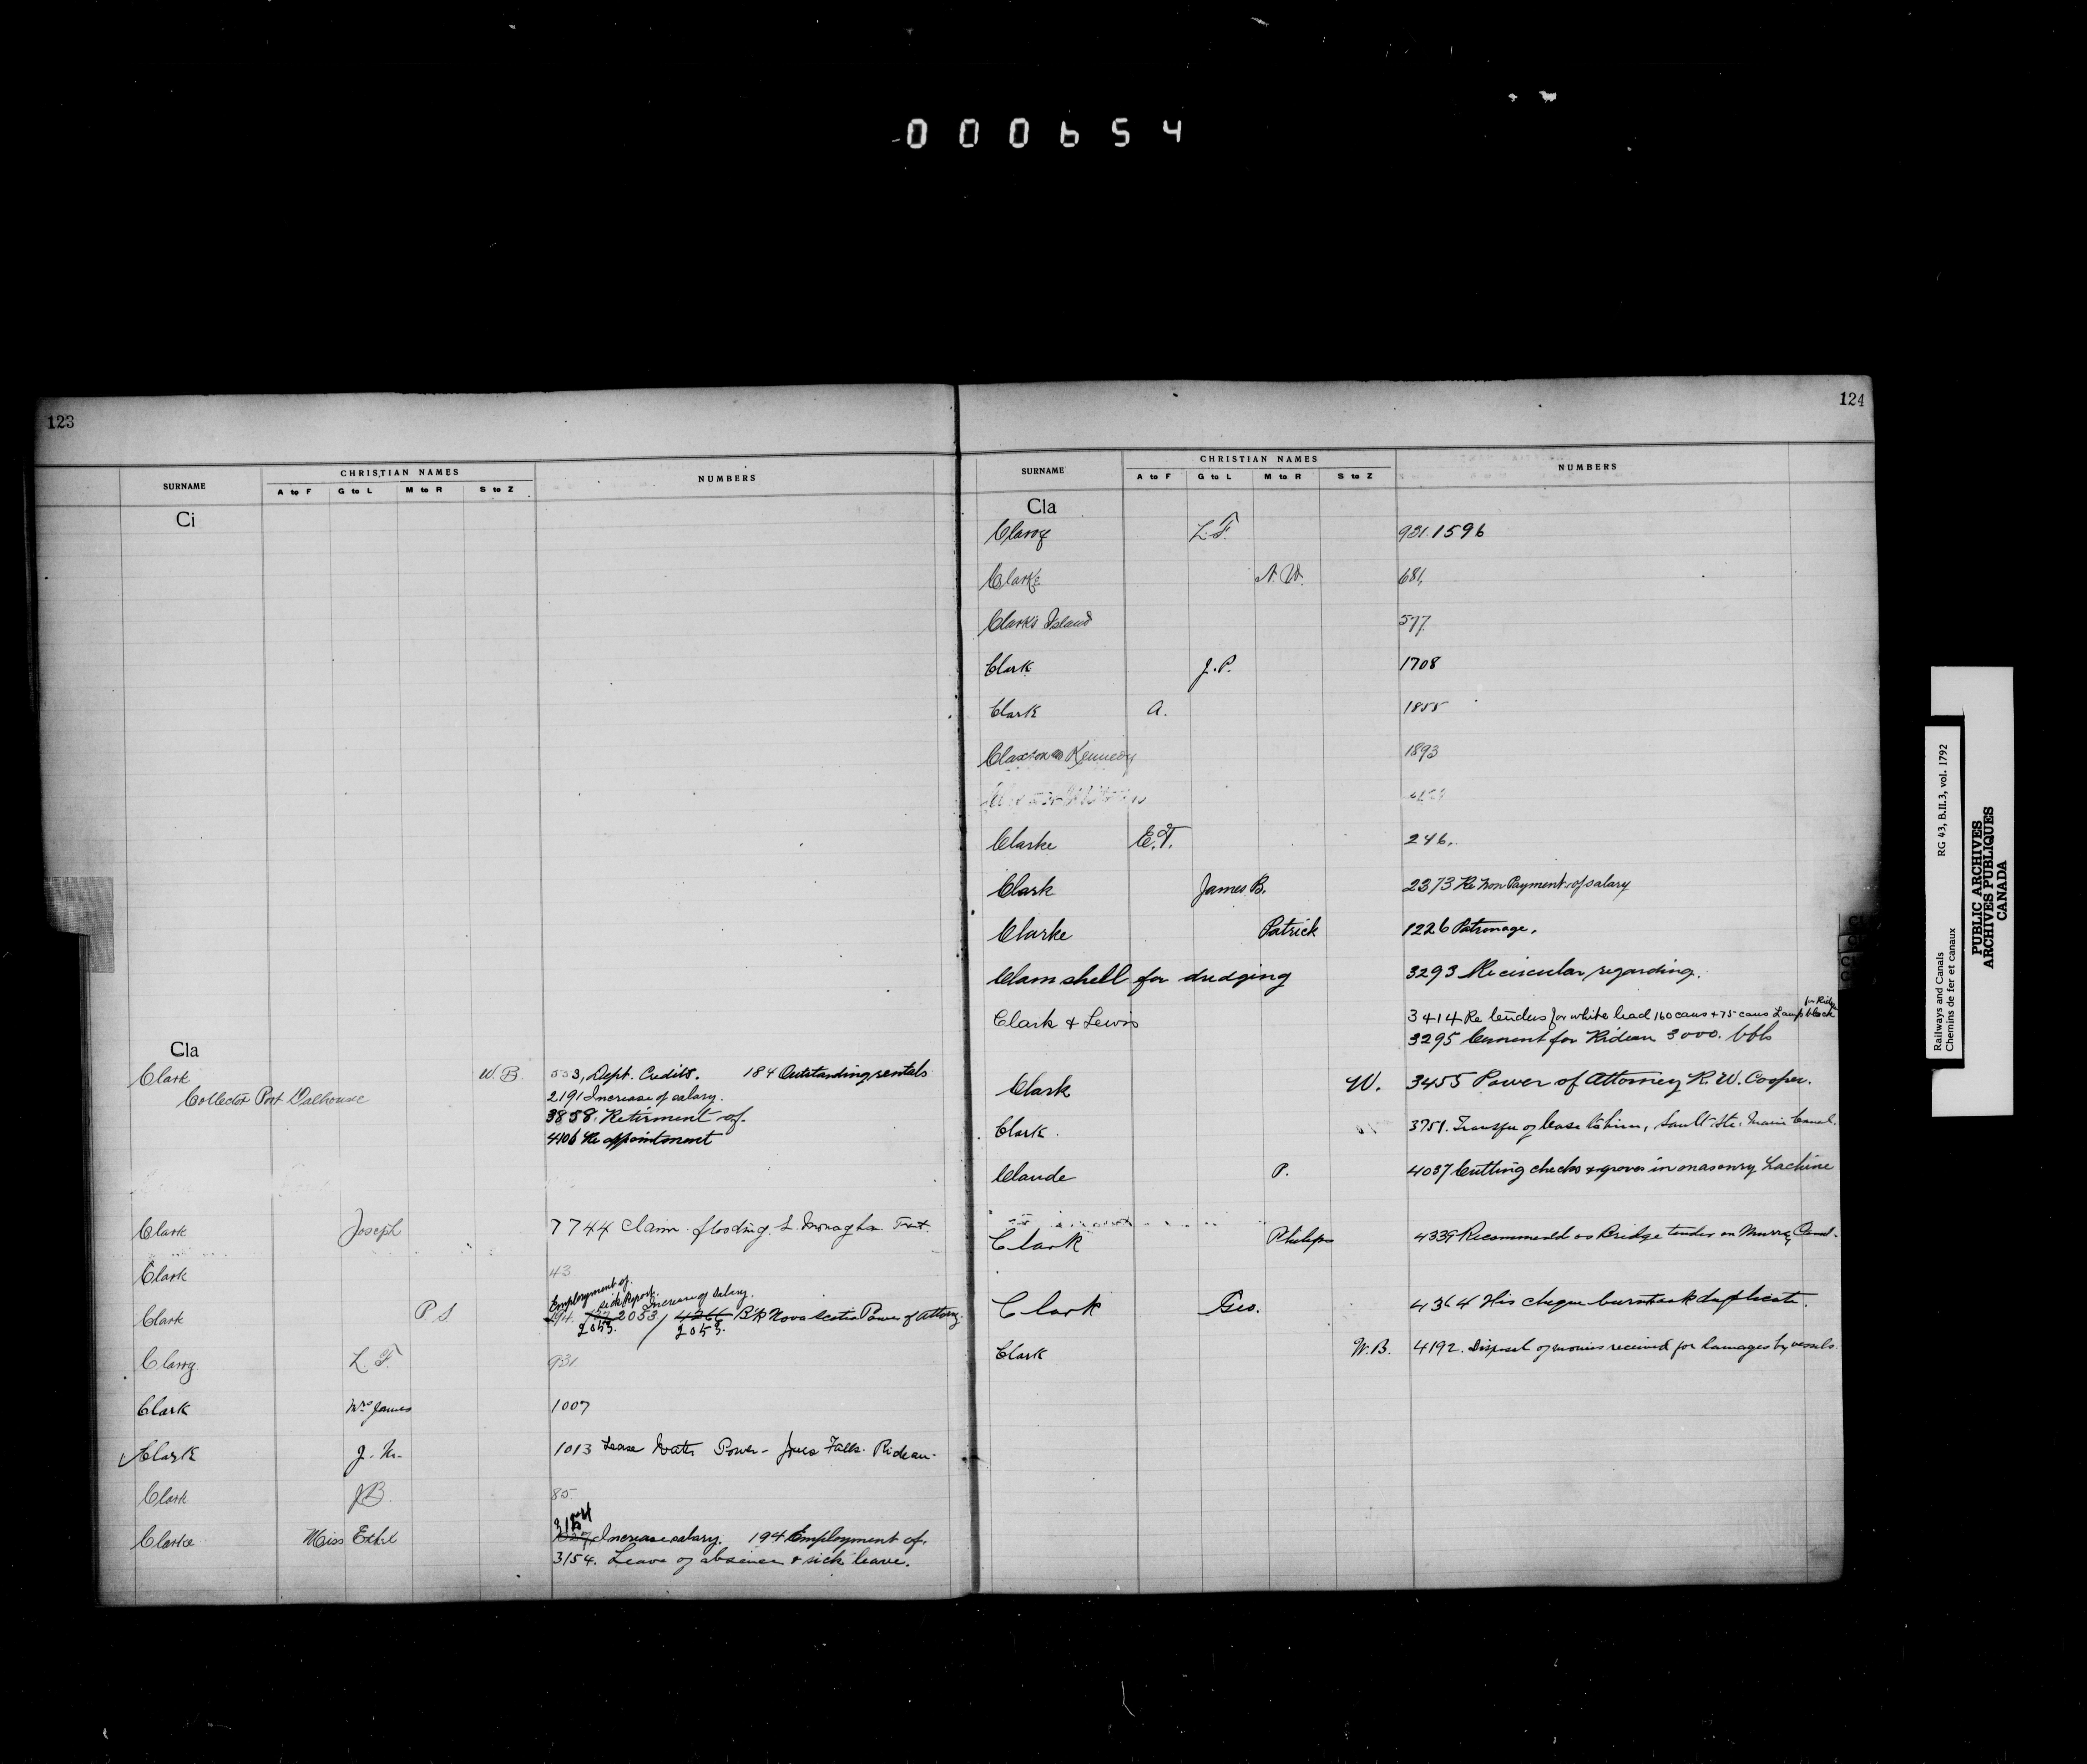 000654
123
SURNAME CHRISTIAN NAMES NUMBERS
A to F G to L M to R S to Z
Ci
Cla
Clark W.B. 553, Dept. Credits. 184 Outstanding rentals
Collector Port Dalhousie 2191 Increase of salary.
3858. Retirment of.
4106 Re appointment
Clark Joseph 7744 Claim flooding S. Monaghan
Clark 43
Employment of.
Sick Report. Increase of Salary.
Clark P.S 2053 / 4266 B'k Nova Scotia Power of Attorney
2053. 2053.
Clarry L.F. 931
Clark Mrs James 1007
Clark J. 1013 Lease Water Power - Jones Falls. Rideau.
Clark J B. 85
Clarke Miss Ethel Increase salary. 194 Employment of.
3154. Leave of absence & sick leave.
124
SURNAME CHRISTIAN NAMES NUMBERS
A to F G to L M to R S to Z
Cla
Clarry L.F. 931. 1596
Clarke N.W. 681,
Clark's Island 577
Clark J.P. 1708
Clark A. 1855
Claxton Kennedy 1893
Clarke E.T. 246.
Clark James B. 2373 Re Non Payment of salary
Clarke Patrick 1226 Patronage.
Clam shell for dredging 3293 Re circular regarding.
Clark & Lewis 3414 Re tenders for white lead 160 cans + 75 cans Lamp black for Rideau
3295 Cement for Rideau 3000. bbls
Clark W. 3455 Power of Attorney R. W. Cooper.
Clark. 3751. Transfer of lease to him, Sault Ste. Marie Canal.
Claude P. 4037 Cutting checks & grooves in masonry Lachine
Clark Philip 4339 Recommended as Bridge tender on Murray Canal.
Clark Geo. 4364 His cheque burnt ask duplicate.
Clark W.B. 4192. Disposal of monies received for damages by vessels
Railways and Canals RG 43, B.II.3, vol. 1792
Chemins de fer et canaux
PUBLIC ARCHIVES
ARCHIVES PUBLIQUES
CANADA